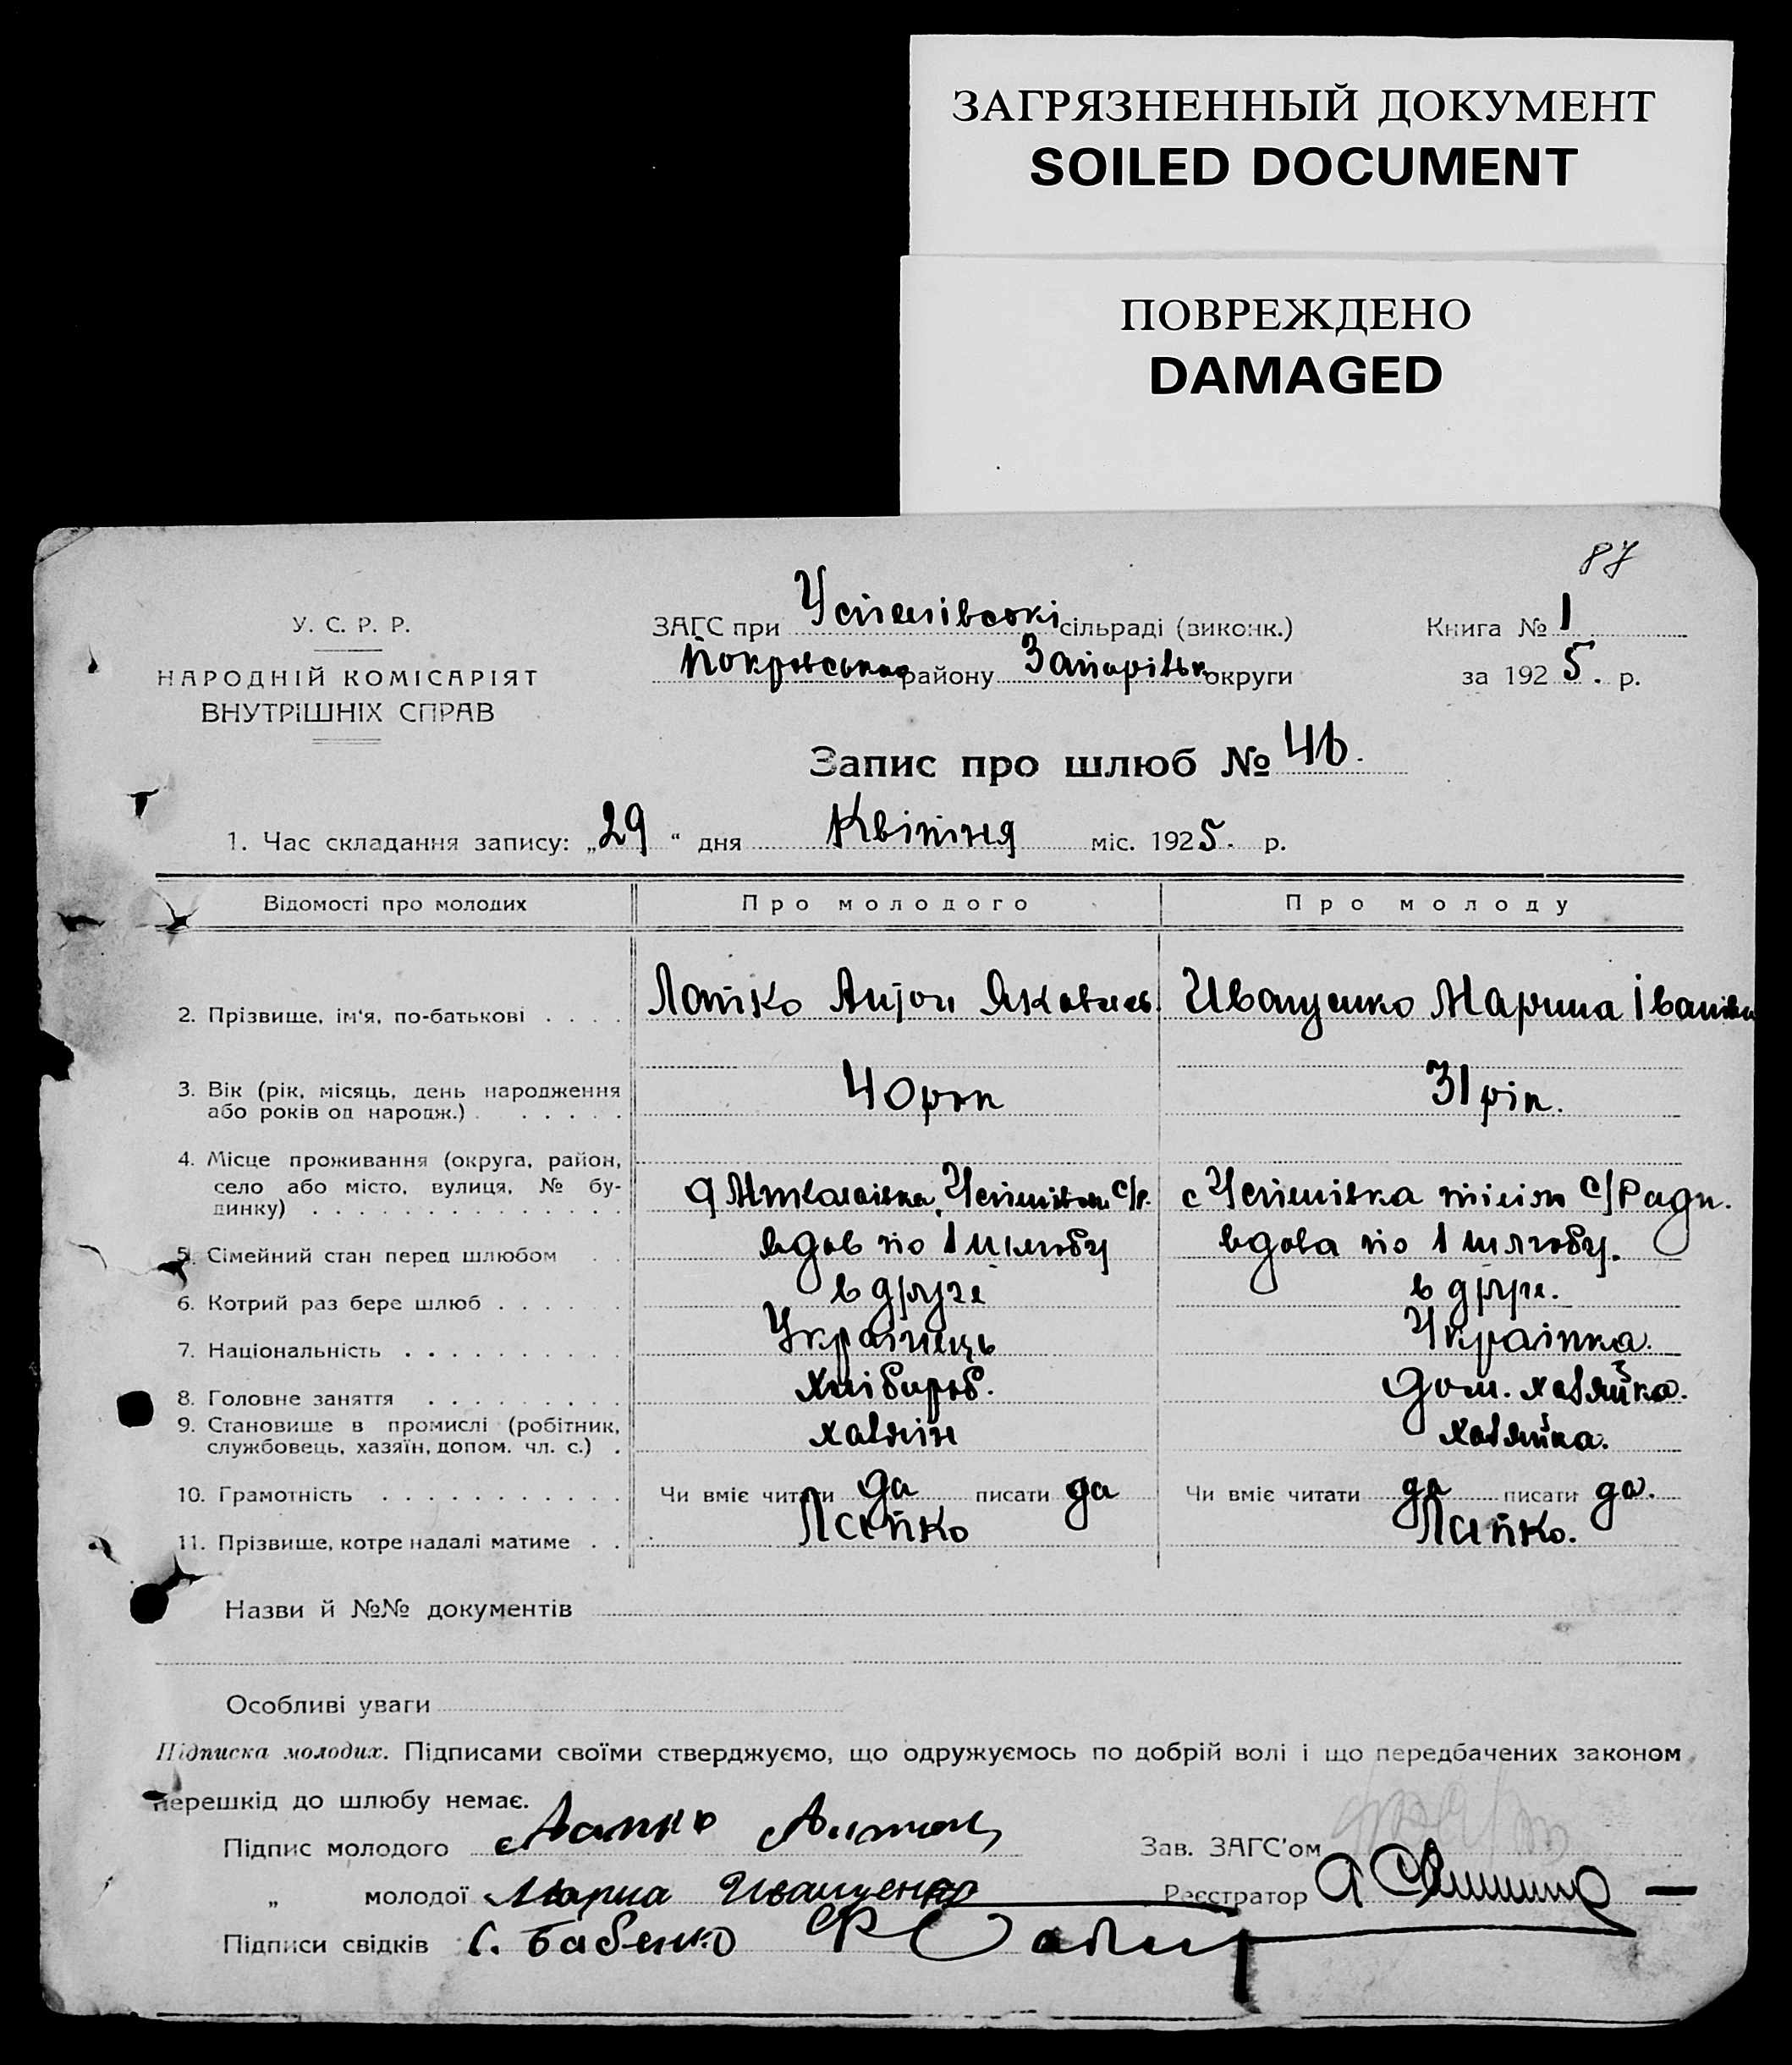 ЗАГРЯЗНЕННЫЙ ДОКУМЕНТ
SOILED DOCUMENT
ПОВРЕЖДЕНО
DAMAGED
87
У. С. Р. Р.
НАРОДНІЙ КОМІСАРІЯТ
ВНУТРІШНІХ СПРАВ
ЗАГС при Успенівські сільраді (виконк.)
Покровськаг району Запоріжк округи
Книга № 1
за 1925. р.
Запис про шлюб №
1. Час складання запису: „29“ дня Квітня міс. 1925. р.
Відомості про молодих Про молодого Про молоду
2. Прізвище, ім'я, по-батькові . . . . Лапко Антон Яковлев. Иващенко Марина Іванівн
3. Вік (рік, місяць, день народження
або років од народж.) . . . . . . 40 рок 31 рік.
4. Місце проживання (округа, район,
село або місто, вулиця, № бу-
динку) . . . . . . . . . . . . . . . с/р. с Успенівка тієіж с/Ради.
5. Сімейний стан перед шлюбом . . вдов по 1 шлюбу вдова по 1 шлюбу.
6. Котрий раз бере шлюб . . . . . . в друге в друге.
7. Національність . . . . . . . . . . Українець Українка.
8. Головне заняття . . . . . . . . . хлібороб. дом. хазяйка.
9. Становище в промислі (робітник,
службовець, хазяїн, допом. чл. с.) . хазяїн хазяйка.
10. Грамотність . . . . . . . . . . . Чи вміє читати да писати да Чи вміє читати да писати да.
11. Прізвище, котре надалі матиме . . Лапко Лапко.
Назви й №№ документів
Особливі уваги
Підписка молодих. Підписами своїми стверджуємо, що одружуємось по добрій волі і що передбачених законом
перешкід до шлюбу немає.
Підпис молодого Лапко Антон Зав. ЗАГС'ом
„ молодої Мариа Иващенко Реєстратор
Підписи свідків С. Бабенко